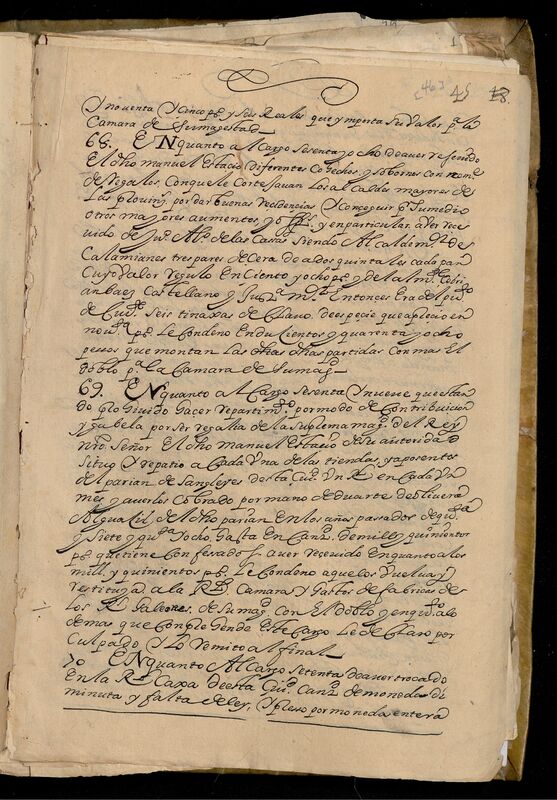 [46] 45 48
Y noventa Y Cinco ps. y seis Reales que ymporta su valor pa. la
Camara de su magestad
68. ENquanto al Cargo Sesenta y ocho de aver resevido
El dho manuel Estacio diferentes Cohechos, y sobornos con nomе.
de Regalos, Con que le Cortejauan los alcaldes mayores de
Las provinas. por dar buenas Residencias Y Conseguir pr. su medio
otros mayores aumentos, y offos. y en particular aver rece
uido de Jua. Alo. de las Casas siendo Alcalde mr. de
Calamianes tres pares de Cera de a dos quintales cada pan
Cuyo valor regulo En Ciento y ocho ps. y del alme. Cebri
an baez Castellano y Justa. mr. Entonces Era del
de Cui. Seis tinaxas de Clauo de especie que aplicio en
nouta. ps. Le Condeno En duCientos y quarenta y ocho
pessos que montan Las dhas partidas Con mas El
doblo pa. la Camara de su magd.
69. ENquanto al Cargo Sesenta Y nueve que estan
do prohiuido hacer repartimto. por modo de Contribucion
y gabela por ser regalia de la suprema magd. del Rey
nro. Señor El dho manuel Estacio de su autoridad
situo Y repartio a Cada Vna de las tiendas, y aposentos
del parian de Sangleyes desta Ciud. Vn Rl. en Cada Vn
mes y auerlos Cobrado por mano de duarte de oliuera
Alguacil del dho parian En los años pasados de qta.
y Siete y qta. y ocho, hasta En Cand. de mill y quinientos
ps. que tiene Confesado aver recevido En quanto a los
mill y quinientos ps. Le Condeno a que los buelua y
restituya a la Rl. Camara y Gastos de fabricas de
Los Rs. Galeones de su magd. Con El doblo y en quto. a lo
demas que Comprehende Este Cargo Le declaro por
Culpado Y Lo remito al final
70 ENquanto Al Cargo setenta de auer trocado
En la Rl. Caxa desta Ciud. Cand. de moneda di
minuta y falta de ley, Y peso por moneda entera